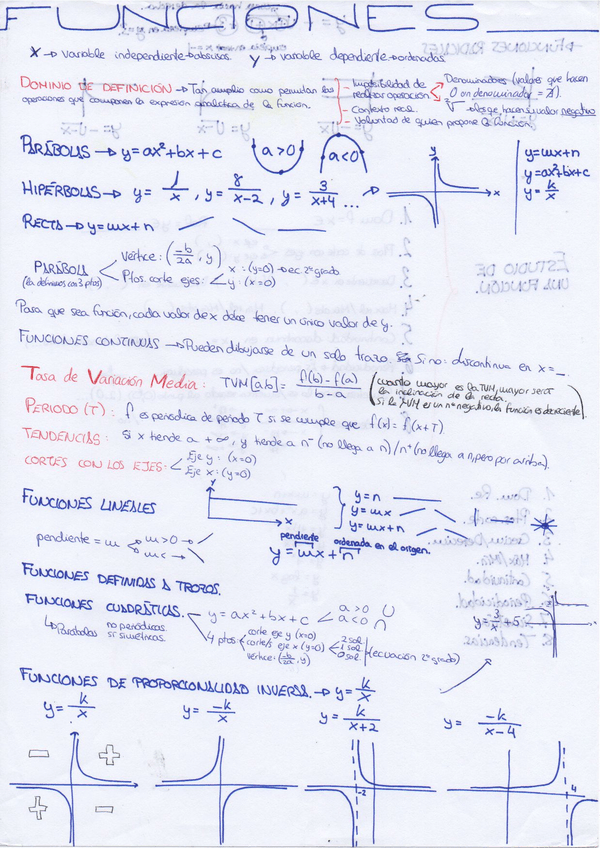 FUNCIONES
x → variable independiente → abscisas. y → variable dependiente → ordenadas
DOMINIO DE DEFINICIÓN → Tan amplio como permitan las operaciones que componen la expresión analítica de la función.
- Imposibilidad de realizar operación
Denominadores (valores que hacen 0 en denominador = ∄).
√ → los que hacen su valor negativo
- Contexto real.
- Voluntad de quien propone la función.
PARÁBOLAS → y = ax²+bx+c a>0 a<0
y
x
y=mx+n
y=ax²+bx+c
y=k/x
HIPÉRBOLAS → y = 1/x , y = 8/x-2 , y = 3/x+4 ... →
RECTA → y=mx+n
PARÁBOLA (la definimos con 3 ptos)
Vértice: (-b/2a, y)
Ptos. corte ejes: x: (y=0) → ec. 2º grado
y: (x=0)
Para que sea función, cada valor de x debe tener un único valor de y.
FUNCIONES CONTINUAS → Pueden dibujarse de un solo trazo. Si no: discontinua en x=_.
Tasa de Variación Media: TVM[a,b] = f(b)-f(a)/b-a (cuanto mayor es la TVM, mayor será la inclinación de la recta. Si la TVM es un nº negativo, la función es decreciente)
PERIODO (T): f es periódica de periodo T si se cumple que f(x) = f(x+T)
TENDENCIAS: Si x tiende a +∞, y tiende a n⁻ (no llega a n)/n⁺ (no llega a n, pero por arriba).
CORTES CON LOS EJES: Eje y: (x=0)
Eje x: (y=0)
FUNCIONES LINEALES
y
x
y=n
y=mx
y=mx+n
pendiente = m m>0 →
m< →
pendiente ordenada en el origen.
y=mx+n
FUNCIONES DEFINIDAS A TROZOS.
FUNCIONES CUADRÁTICAS. → y = ax²+bx+c a>0 ∪
a<0 ∩
↳ Parábolas no periódicas
sí simétricas.
4 ptos: corte eje y (x=0)
corte/s eje x (y=0) 2 sol 1 sol 0 sol (ecuación 2º grado)
vértice: (-b/2a, y)
y=3/x+5
FUNCIONES DE PROPORCIONALIDAD INVERSA. → y= k/x
y= k/x y= -k/x y= k/x+2 y= -k/x-4
- +
+ -
-2
4